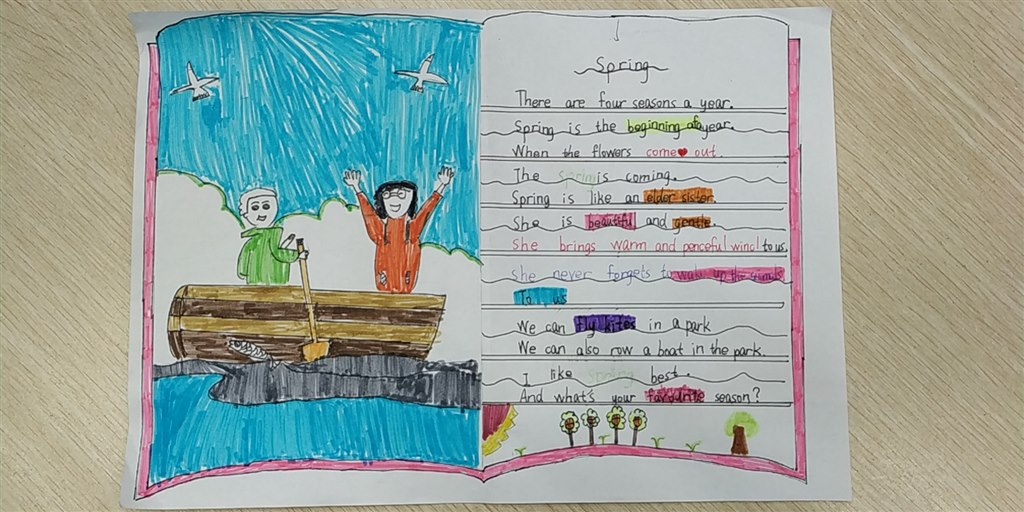 Spring
There are four seasons a year.
Spring is the beginning of year.
When the flowers come out.
The spring is coming.
Spring is like an elder sister.
She is beautiful and gentle.
She brings warm and peaceful wind to us.
She never forgets to wake up the animals
To us
We can fly kites in a park
We can also row a boat in the park.
I like spring best.
And what's your favourite season?